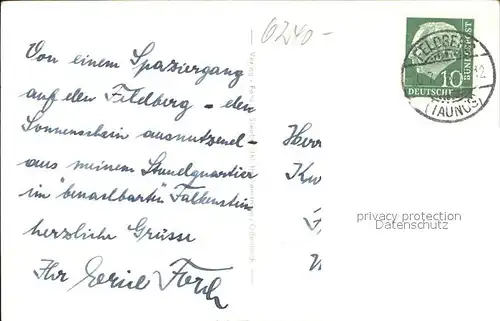 6240-
Von einem Spaziergang
auf den Feldberg - den
Sonnenschein ausnutzend -
aus meinem Standquartier
im "benachbarten" Falkenstein
herzliche Grüsse
Ihr Erich
FELDBERG
(TAUNUS)
12
10
DEUTSCHE
BUNDESPOST
Herr
privacy protection
Datenschutz